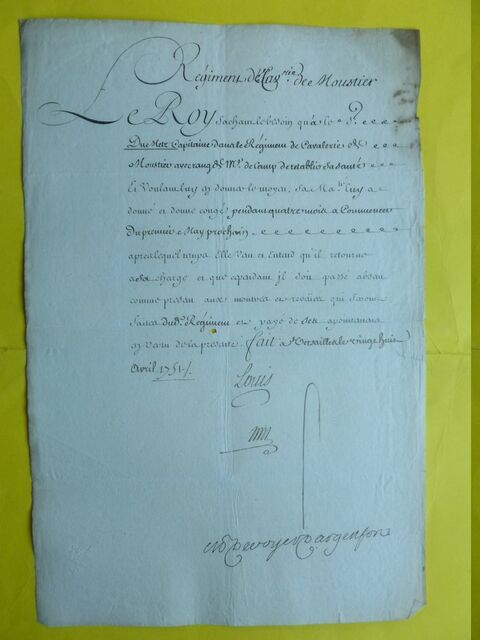 Regiment de Cav.rie de Moustier
Le Roy Sachant le besoin qu'a le S.r
Capitaine dans le Régiment de Cavalerie de
Moustier avec rang de M.e de Camp de rétablir sa santé
Et Voulant luy en donner le moyen, Sa Ma.té luy a
donné et donne congé pendant quatre mois a Commencer
Du premier May prochain
apres lequel temps Elle Veut et Entend qu'il retourne
a sa charge et que cependant jl soit passé absent
comme present aux montres et reveües qui seront
faites dud. Régiment et payé de ses apointemens
en vertu de la presente. Fait a Versailles le vingt huit
Avril 1751./.
Louis
M De Voyer D'argenson